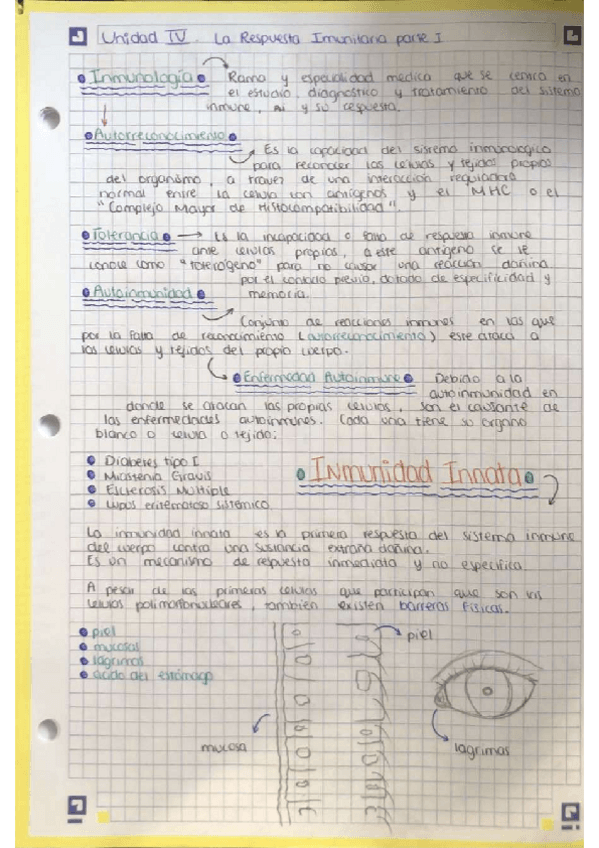 Unidad IV. La Respuesta Imunitaria parte I
Inmunología Rama y especialidad medica que se centra en
el estudio, diagnostico y tratamiento del sistema
inmune, y su respuesta.
Autorreconocimiento
Es la capacidad del sistema inmunologico
para reconocer las celulas y tejidos propios
del organismo, a travez de una interacción reguladora
normal entre la celula con antigenos y el MHC o el
"Complejo Mayor de Histocompatibilidad".
Tolerancia Es la incapacidad o falta de respuesta inmune
ante celulas propias, a este antigeno se le
conoce como "tolerogeno" para no causar una reacción dañina
por el contacto previo, dotado de especificidad y
Autoinmunidad memoria.
Conjunto de reacciones inmunes en las que
por la falta de reconocimiento (autorreconocimiento) este ataca a
las celulas y tejidos del propio cuerpo.
Enfermedad Autoinmune Debido a la
autoinmunidad en
donde se atacan las propias celulas, son el causante de
las enfermedades autoinmunes. Cada una tiene su organo
blanco o celula o tejido:
Diabetes tipo I
Miastenia Gravis
Esclerosis Multiple
Lupus eritematoso sistémico
Inmunidad Innata
La inmunidad innata es la primera respuesta del sistema inmune
del cuerpo contra una sustancia extraña dañina.
Es un mecanismo de respuesta inmediata y no especifica
A pesar de las primeras celulas que participan que son las
celulas polimorfonucleares, tambien existen barreras físicas.
piel
mucosas
lágrimas
ácido del estómago
piel
mucosa
lagrimas